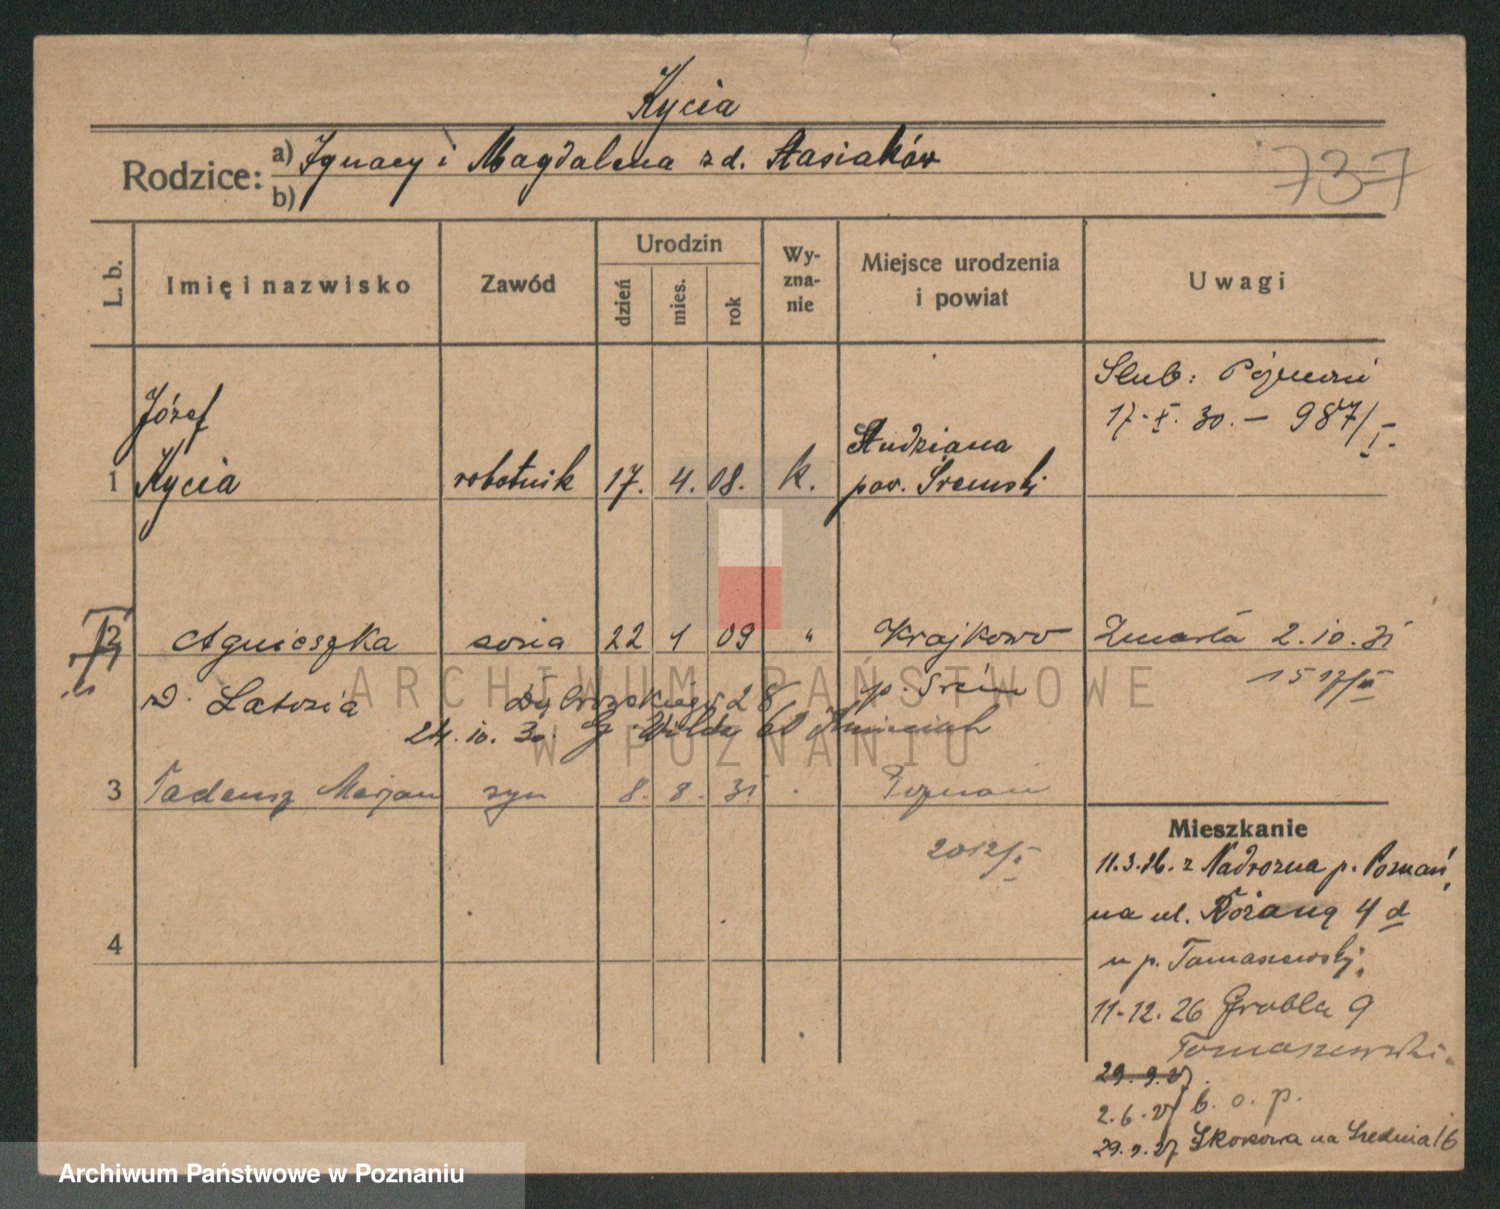 Kycia
Rodzice: a) Ignacy i Magdalena z d. Stasiaków
b)
737
L. b.
Imię i nazwisko
Zawód
Urodzin
dzień
mies.
rok
Wy-
zna-
nie
Miejsce urodzenia
i powiat
Uwagi
Józef
1 Kycia robotnik 17. 4. 08. k.
Studziana
pow. Śremski
Ślub: Poznań
17.X.30. – 987/I.
2 Agnieszka żona 22 1 09 " Krajkowo Zmarła 2.10.31
d. Latosia 28 p. Śrem 1517/II
24.10.30. G. Wilda 60
3 Tadeusz Marjan syn 8. 8. 31 Poznań
2012/I
4
Mieszkanie
11.3.26. z Nadrozna p. Poznań,
na ul. Różaną 4 d
u p. Tomaszewskj.
11-12.26 Grobla 9
Tomaszewski.
29.9.27.
2.6.27 b. o. p.
29.9.27 Skokowa na Średnia 16
ARCHIWUM PAŃSTWOWE
W POZNANIU
Archiwum Państwowe w Poznaniu